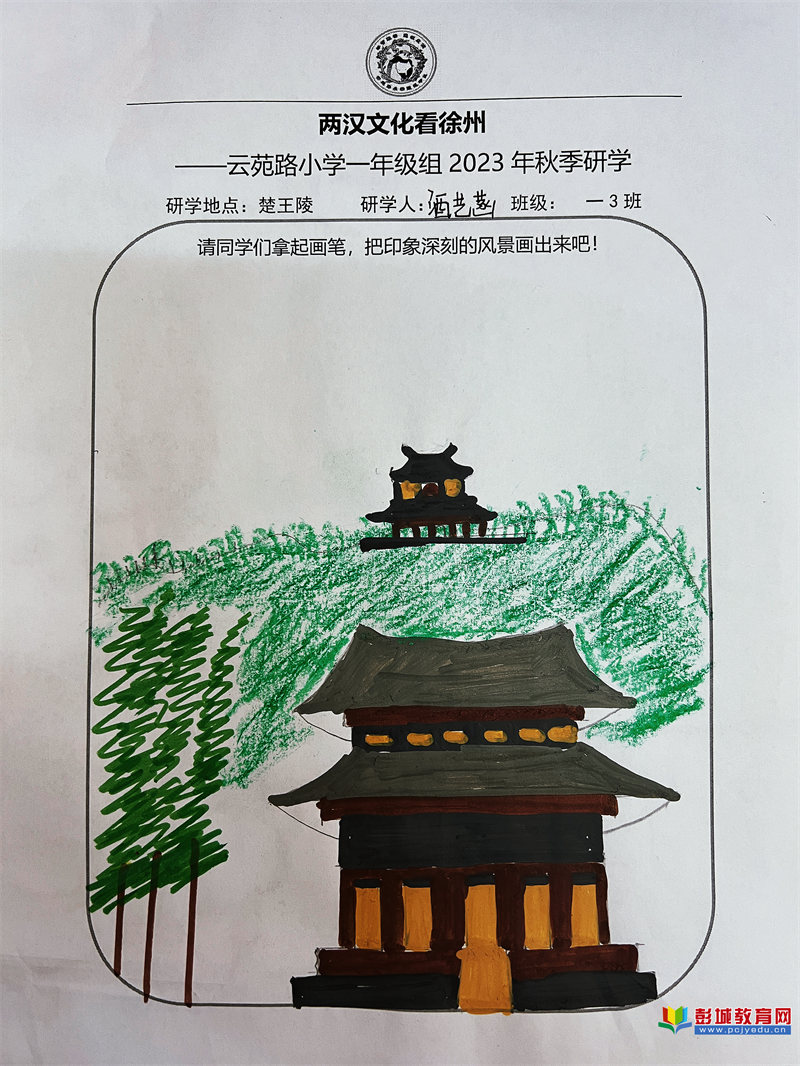 两汉文化看徐州
——云苑路小学一年级组 2023 年秋季研学
研学地点：楚王陵 研学人：酒艺菡 班级： 一 3 班
请同学们拿起画笔，把印象深刻的风景画出来吧！
彭城教育网
www.pcjyedu.cn